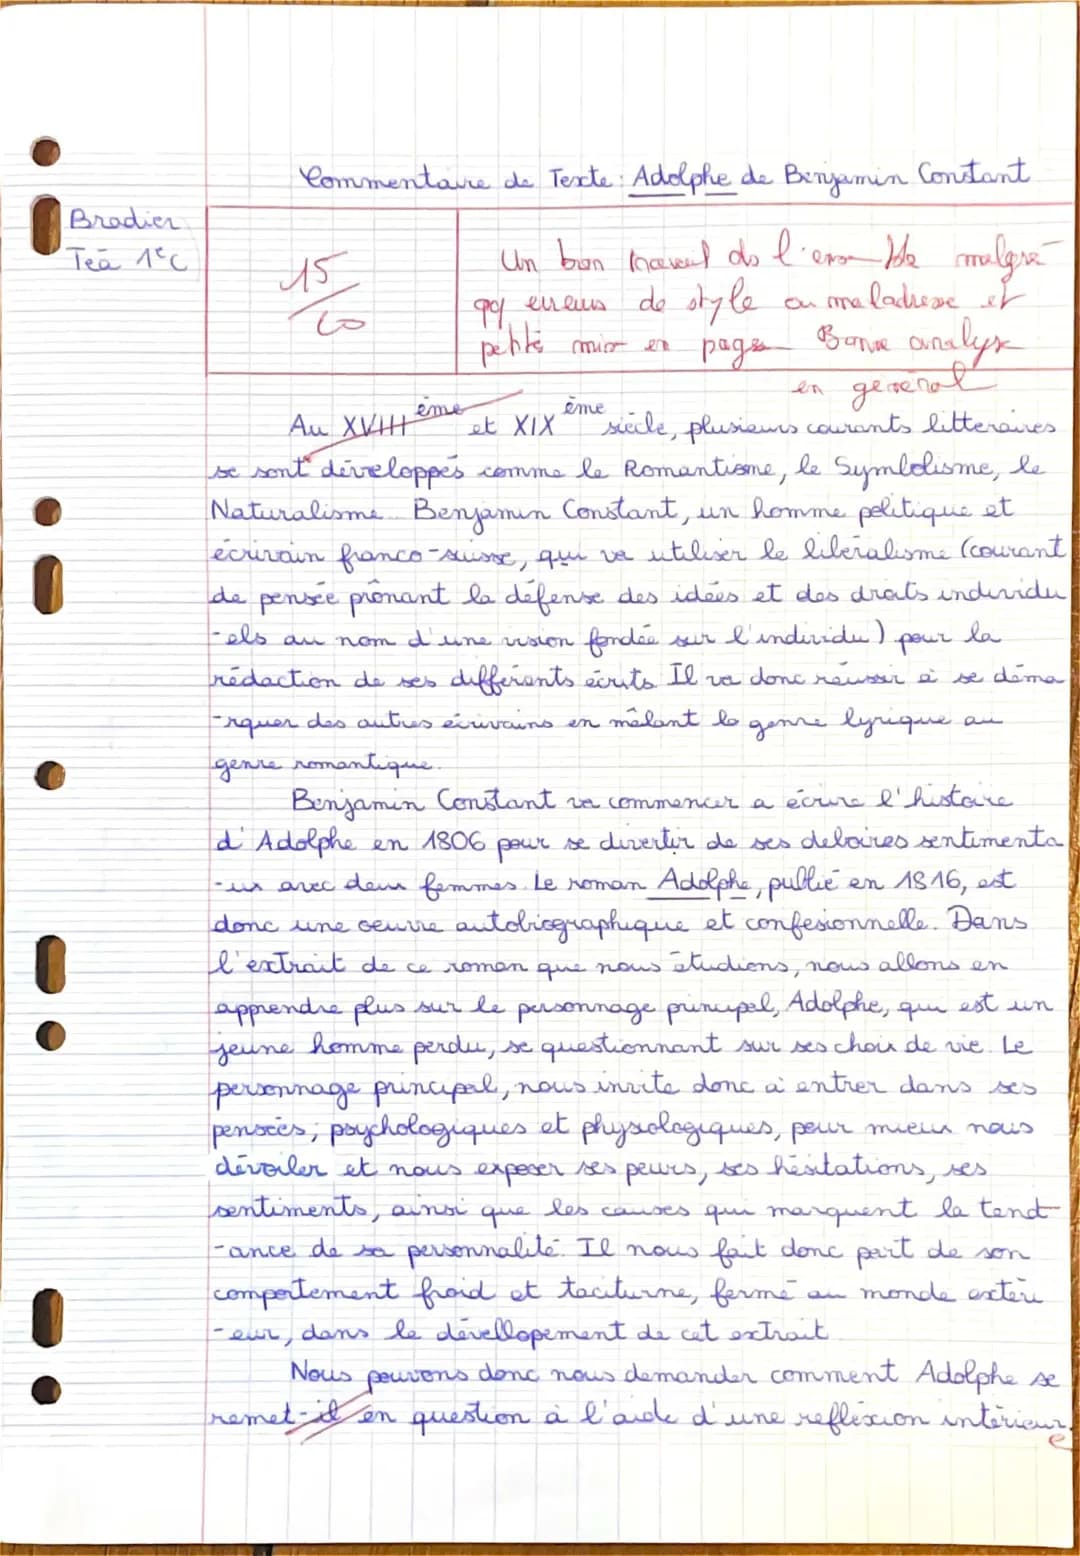 Commentaire de Texte : Adolphe de Benjamin Constant
Bradier
Téa 1°C
15
20
Un bon travail ds l'ensemble malgré
qq erreurs de style ou maladresse et
petite mise en page Bonne analyse
en général
Au XVIII ème et XIX ème siècle, plusieurs courants litteraires
se sont développés comme le Romantisme, le Symbolisme, le
Naturalisme.. Benjamin Constant, un homme politique et
écrivain franco-suisse, qui va utiliser le libéralisme (courant
de pensée prônant la défense des idées et des droits individu
-els au nom d'une vision fondée sur l'individu) pour la
rédaction de ses différents écrits Il va donc réussir à se déma
-rquer des autres écrivains en mêlant le genre lyrique au
genre romantique.
Benjamin Constant va commencer a écrire l'histoire
d'Adolphe en 1806 pour se divertir de ses deboires sentimenta
-ux avec deux femmes. Le roman Adolphe, publié en 1816, est
donc une oeuvre autobiographique et confesionnelle. Dans
l'extrait de ce roman que nous étudions, nous allons en
apprendre plus sur le personnage principal, Adolphe, qui est un
jeune homme perdu, se questionnant sur ses choix de vie. Le
personnage principal, nous invite donc à entrer dans ses
pensées, psychologiques et physiologiques, pour mieux nous
dévoiler et nous exposer ses peurs, ses hésitations, ses
sentiments, ainsi que les causes qui marquent la tend
-ance de sa personnalité. Il nous fait donc part de son
comportement froid et taciturne, fermé au monde extéri
-eur, dans le dévellopement de cet extrait.
Nous pouvons donc nous demander comment Adolphe se
remet-il en question à l'aide d'une refléxion intérieur.
e